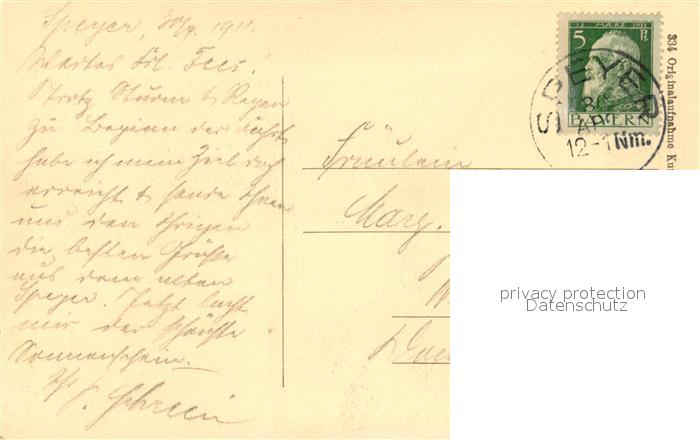 Speyer, 30/4. 1911.
Wertes Frl. Fees!
Trotz Sturm & Regen
zu Beginn der Fahrt
habe ich mein Ziel doch
erreicht & sende Ihnen
und den Ihrigen
die besten Grüße
aus dem alten
Speyer. Jetzt lacht
mir der schönste
Sonnenschein.
Ihr
12 MÄRZ 1911
5 Pf.
BAYERN
SPEYER
AP
12-1 Nm.
334 Originalaufnahme
Fräulein
Marg.
privacy protection
Datenschutz